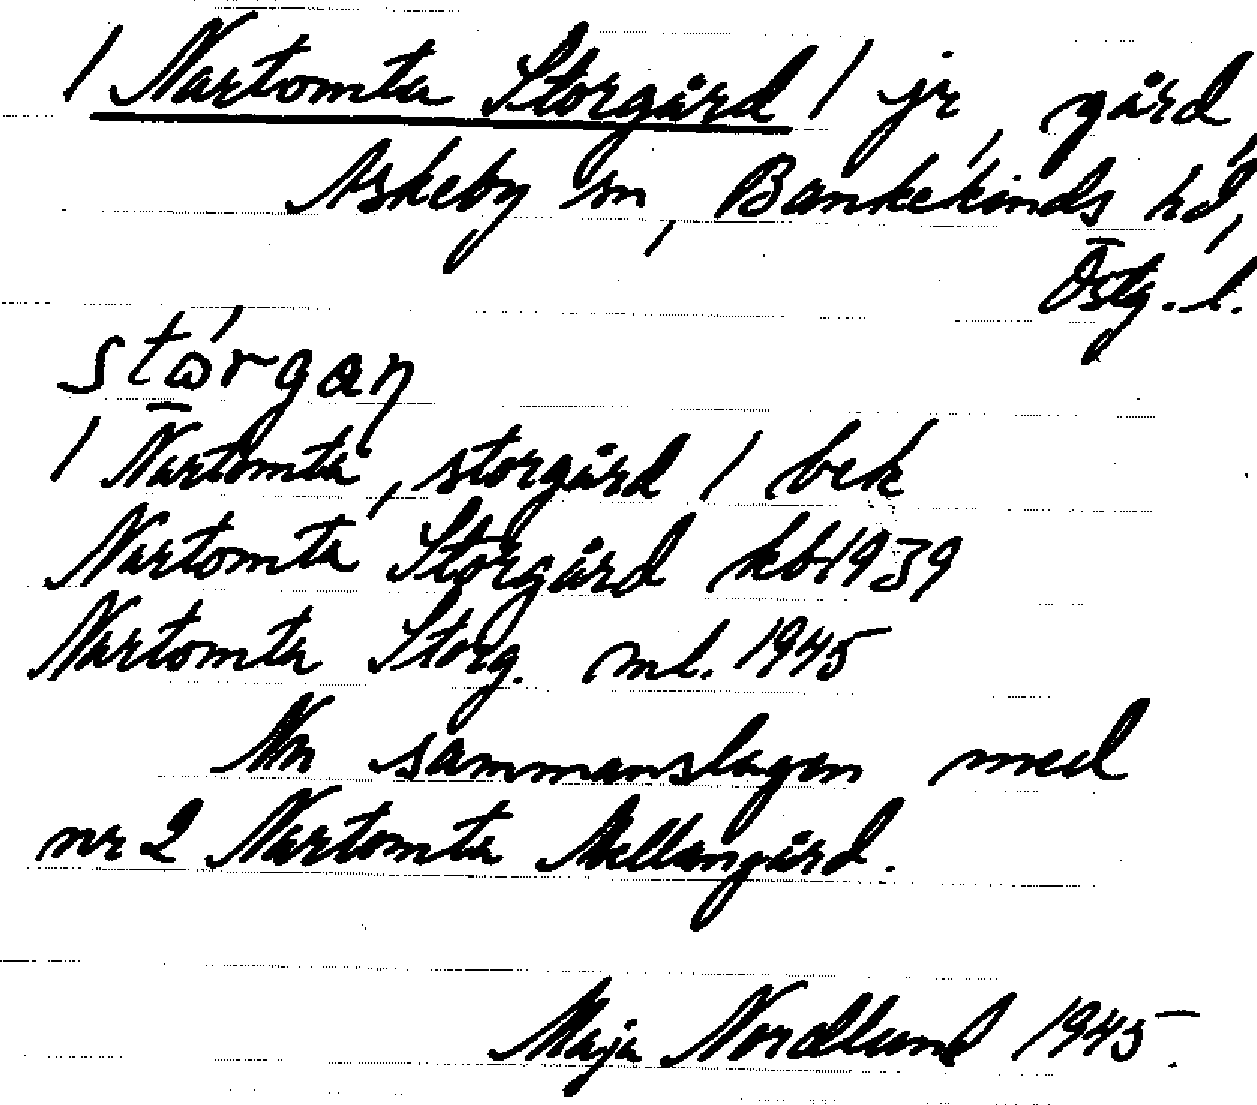 / Nartomta Storgård / jr, gård,
Askeby sn, Bankekinds hd,
Östg. l.
stórgan
/ Nartomta, storgård / bek
Nartomta Storgård kb 1939
Nartomta Storg. ml. 1945
Nu sammanslagen med
nr 2 Nartomta Mellangård.
Maja Nordlund 1945